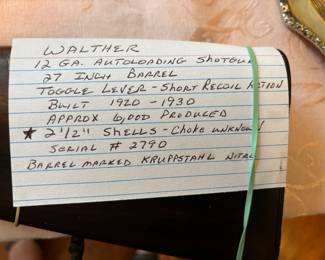 WALTHER
12 GA. AUTOLOADING SHOTGUN
27 INCH BARREL
TOGGLE LEVER - SHORT RECOIL ACTION
BUILT 1920 - 1930
APPROX 6,000 PRODUCED
★ 2 1/2" SHELLS - CHOKE UNKNOWN
SERIAL # 2790
BARREL MARKED KRUPPSTAHL NITRO